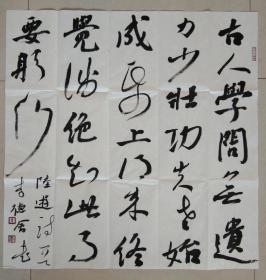 古人學問无遺
力少壯功夫老始
成紙上得来終
覺淺絕知此事
要躬行
陸遊詩
李德書